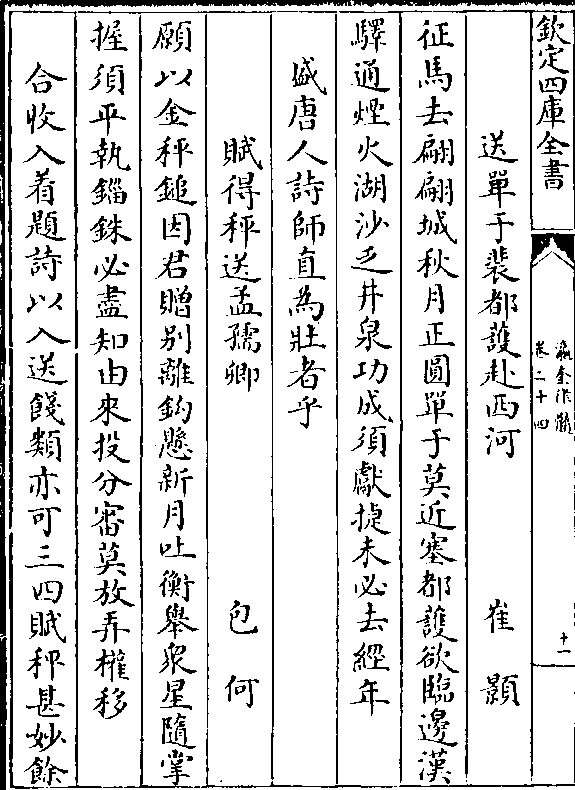 欽定四庫全書
瀛奎律髓
卷二十四
十一
送單于裴都護赴西河　崔顥
征馬去翩翩城秋月正圓單于莫近塞都護欲臨邊漢
驛通煙火湖沙乏井泉功成須獻捷未必去經年
盛唐人詩師直為壯者乎
賦得秤送孟孺卿　包何
願以金秤鎚因君贈别離鈎懸新月吐衡舉衆星隨掌
握須平執錙銖必盡知由來投分審莫放弄權移
合收入着題詩以入送餞類亦可三四賦秤甚妙餘